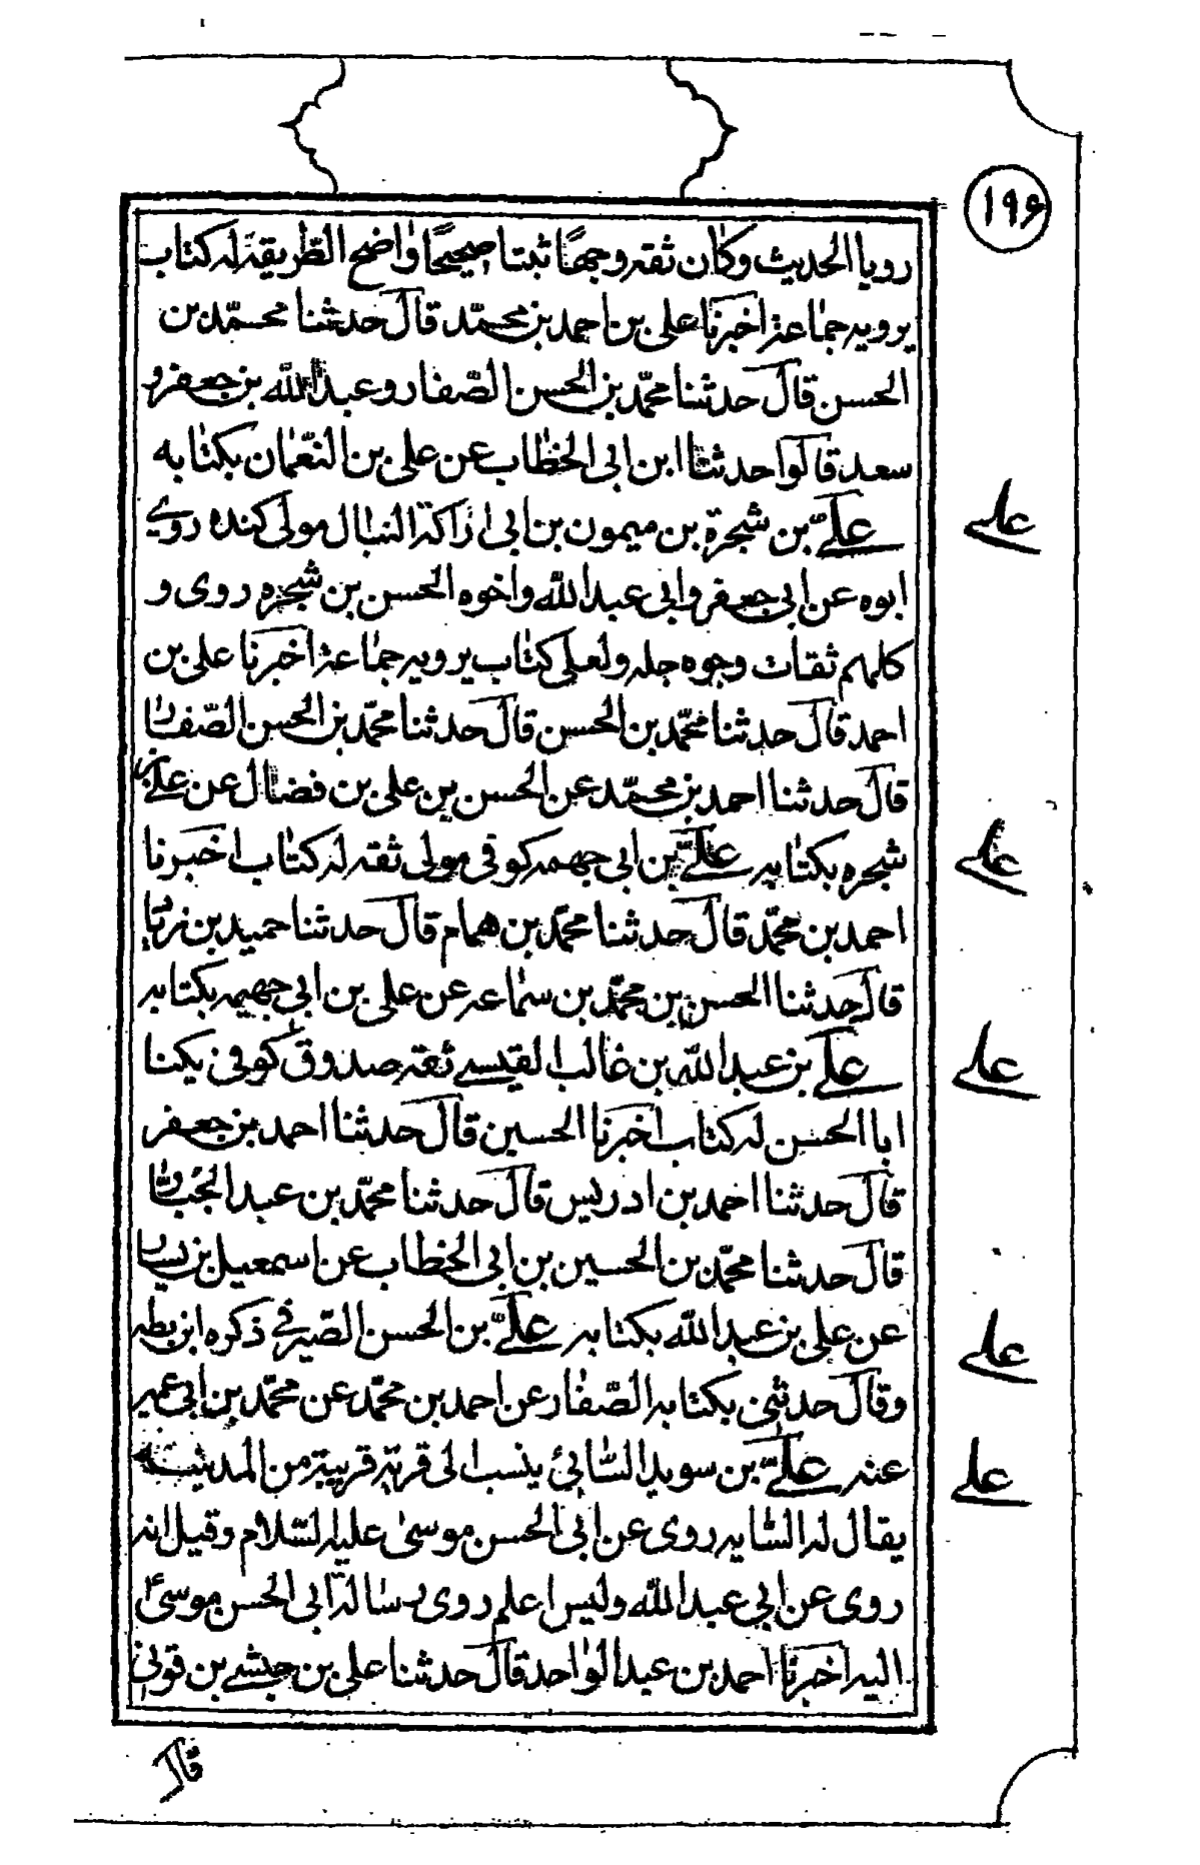 ۱۹۶
رويا الحديث وكان ثقه وجهًا ثبتا صحيحًا واضح الطريقة له كتاب
يرويه جماعة اخبرنا على بن احمد بن محمّد قال حدثنا محمّد بن
الحسن قال حدثنا محمّد بن الحسن الصّفار و عبد الله بن جعفر و
سعد قالوا حدثنا ابن ابى الخطاب عن على بن النعمان بكتابه
علىّ بن شجرة بن ميمون بن ابى اراكة النبال مولى كنده روى
على
ابوه عن ابى جعفر و ابى عبد الله و اخوه الحسن بن شجره روى و
كلهم ثقات وجوه جله ولعلى كتاب يرويه جماعة اخبرنا على بن
احمد قال حدثنا محمّد بن الحسن قال حدثنا محمّد بن الحسن الصّفار
قال حدثنا احمد بن محمّد عن الحسن بن على بن فضال عن على بن
شجره بكتابه علىّ بن ابى جهمه كوفى مولى ثقه له كتاب اخبرنا
على
احمد بن محمّد قال حدثنا محمّد بن همام قال حدثنا حميد بن زياد
قال حدثنا الحسن بن محمّد بن سماعه عن على بن ابى جهيمه بكتابه
علىّ بن عبد الله بن غالب القيسى ثقه صدوق كوفى يكنا
على
ابا الحسن له كتاب اخبرنا الحسين قال حدثنا احمد بن جعفر
قال حدثنا احمد بن ادريس قال حدثنا محمّد بن عبد الجبار
قال حدثنا محمّد بن الحسين بن ابى الخطاب عن اسمعيل بن يسار
عن على بن عبد الله بكتابه علىّ بن الحسن الصّيرفى ذكره ابن بطه
على
وقال حدثنى بكتابه الصّفار عن احمد بن محمّد عن محمّد بن ابى عمير
عنه علىّ بن سويد السّائىّ ينسب الى قرية قريبة من المدينة
على
يقال له السّايه روى عن ابى الحسن موسى عليه السّلام وقيل انه
روى عن ابى عبد الله وليس اعلم روى رسالة ابى الحسن موسىٰ
اليه اخبرنا احمد بن عبد الواحد قال حدثنا على بن حبشى بن قونى
قال